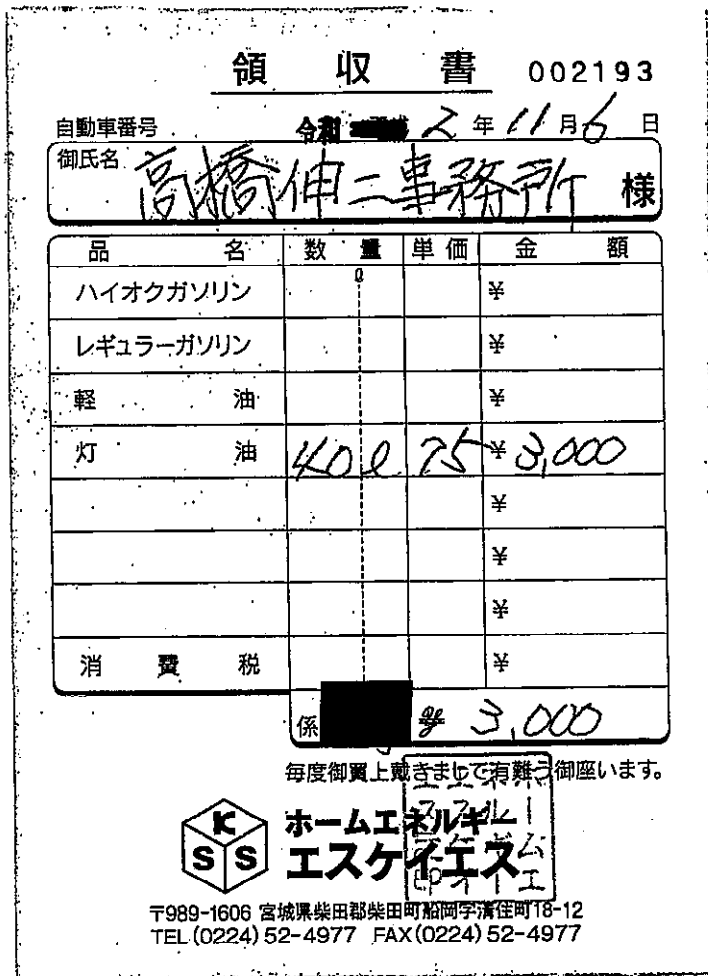 領収書 002193
自動車番号 令和 2年11月6日
御氏名 高橋伸二事務所 様
品名 数量 単価 金額
ハイオクガソリン ℓ ¥
レギュラーガソリン ¥
軽油 ¥
灯油 40ℓ 75 ¥3,000
¥
¥
¥
消費税 ¥
係 ¥3,000
毎度御買上戴きまして有難う御座います。
KSS
ホームエネルギー
エスケイエス
〒989-1606 宮城県柴田郡柴田町船岡字清住町18-12
TEL(0224)52-4977 FAX(0224)52-4977